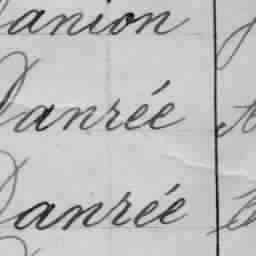 Danion
Danrée
Danrée